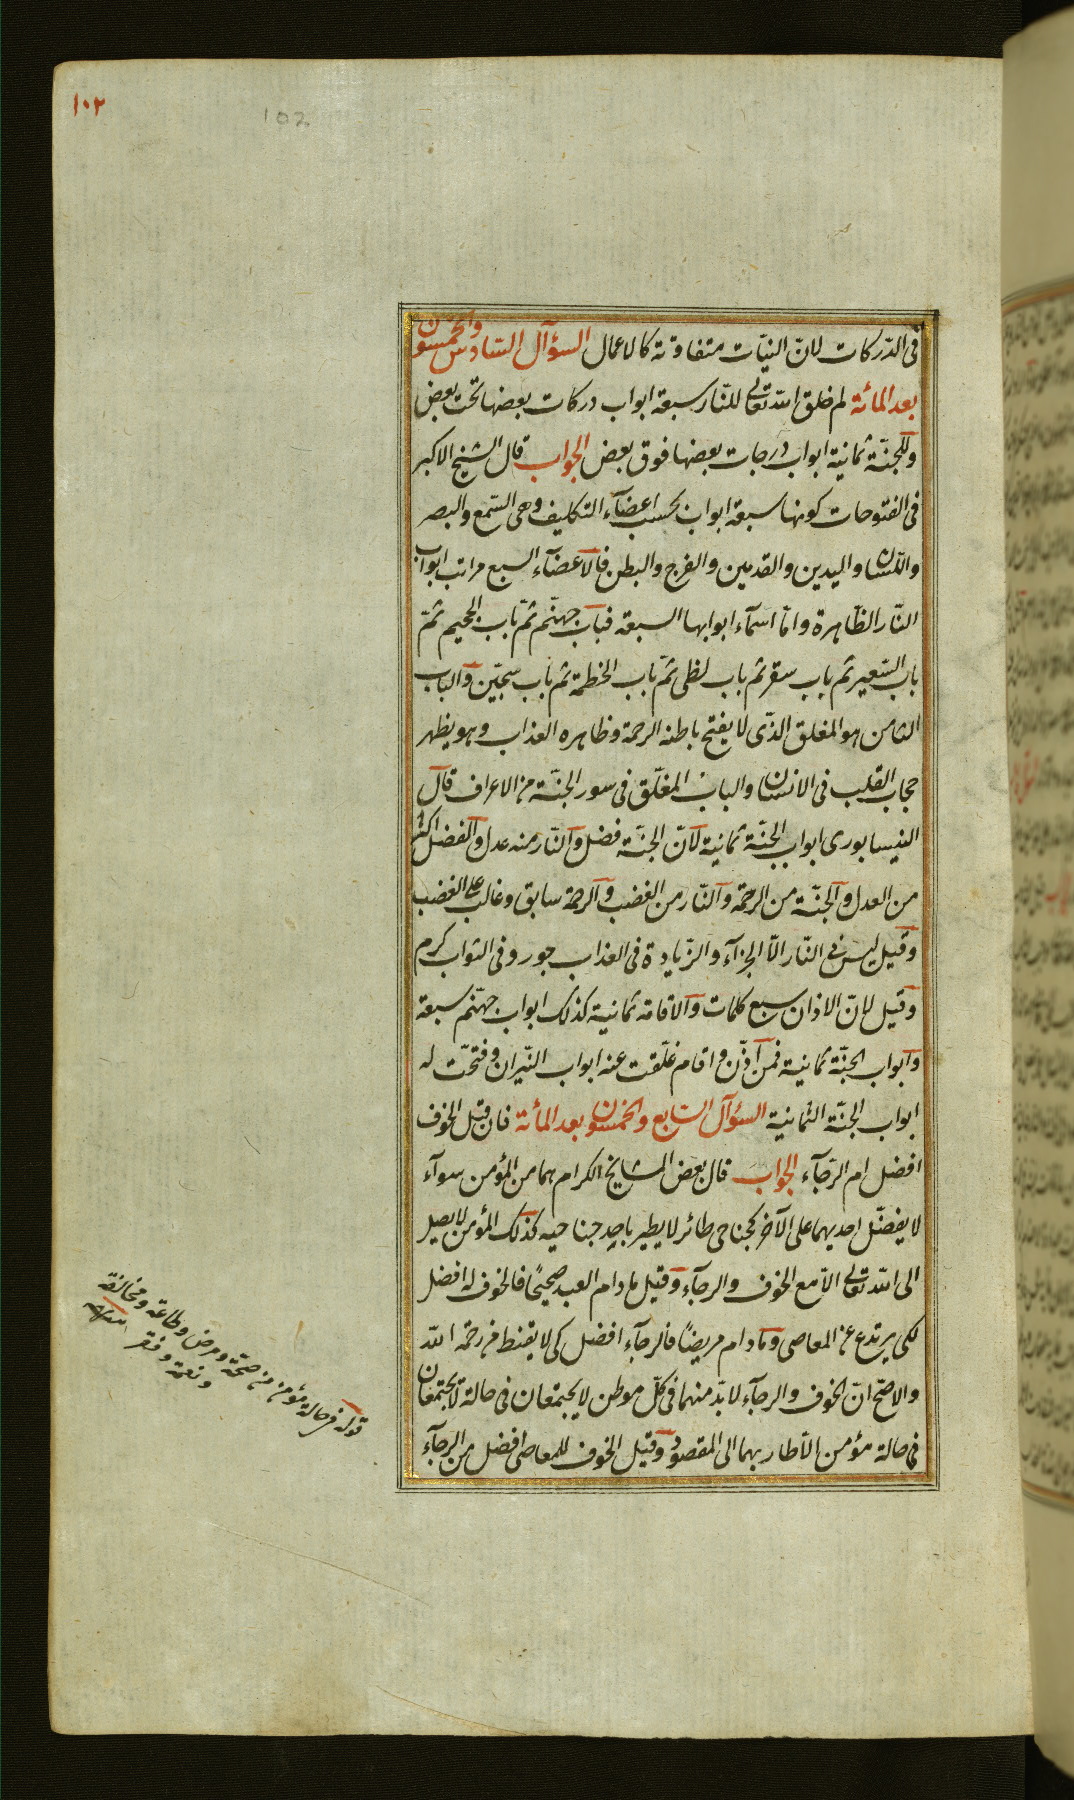 ١٠٢
102
فى الدّركات لانّ النيّات متفاوتة كالاعمال السؤآل السّادس والخمسون
بعد المائة لم خلق الله تعالى للنّار سبعة ابواب دركات بعضها تحت بعض
وللجنّة ثمانية ابواب درجات بعضها فوق بعض الجواب قال الشيخ الاكبر
فى الفتوحات كونها سبعة ابواب بحسب اعضآء التكليف وهى السّمع والبصر
واللّسان واليدين والقدمين والفرج والبطن فالاعضآء السبع مراتب ابواب
النّار الظّاهرة وامّا اسمآء ابوابها السبعة فباب جهنّم ثمّ باب الجحيم ثمّ
باب السّعير ثم باب سقر ثم باب لظى ثمّ باب الحطمة ثم باب سجّين والباب
الثامن هو المغلق الذّى لا يفتح باطنه الرحمة وظاهره العذاب وهو يظهر
حجاب القلب فى الانسان والباب المغلّق فى سور الجنّة من الاعراف قال
النيسابورى ابواب الجنّة ثمانية لانّ الجنّة فضل والنّار منه عدل والفضل اكثر
من العدل والجنّة من الرحمة والنّار من الغضب والرحمة سابق وغالب على الغضب
وقيل ليس فى النّار الّا الجزآء والزّيادة فى العذاب جور وفى الثواب كرم
وقيل لانّ الاذان سبع كلمات والاقامة ثمانية كذلك ابواب جهنّم سبعة
وابواب الجنّة ثمانية فمن اذّن واقام غلّقت عنه ابواب النّيران وفتحت له
ابواب الجنّة الثمانية السؤآل السّابع والخمسون بعد المأئة فان قيل الخوف
افضل ام الرّجآء الجواب قال بعض المشايخ الكرام هما من المؤمن سوآء
لا يفضّل احديهما على الآخر كجناحى طائر لا يطير باحد جناحيه كذلك المؤمن لا يصل
الى الله تعالى الّا مع الخوف والرجآء وقيل مادام العبد صحيحًا فالخوف له افضل
لكى يرتدع عن المعاصى ومادام مريضًا فالرجآء افضل كى لا يقنط من رحمة الله
والاصّح انّ الخوف والرجآء لابدّ منهما فى كلّ موطن لا يجتمعان فى حالة لا يجتمعان
فى حالة مؤمن الّا طار بهما الى المقصود وقيل الخوف للمعاصى افضل من الرجآء
قوله فى حالة مؤمن من صحّة ومرض وطاعة ومخالفة
ونعمة وفقر